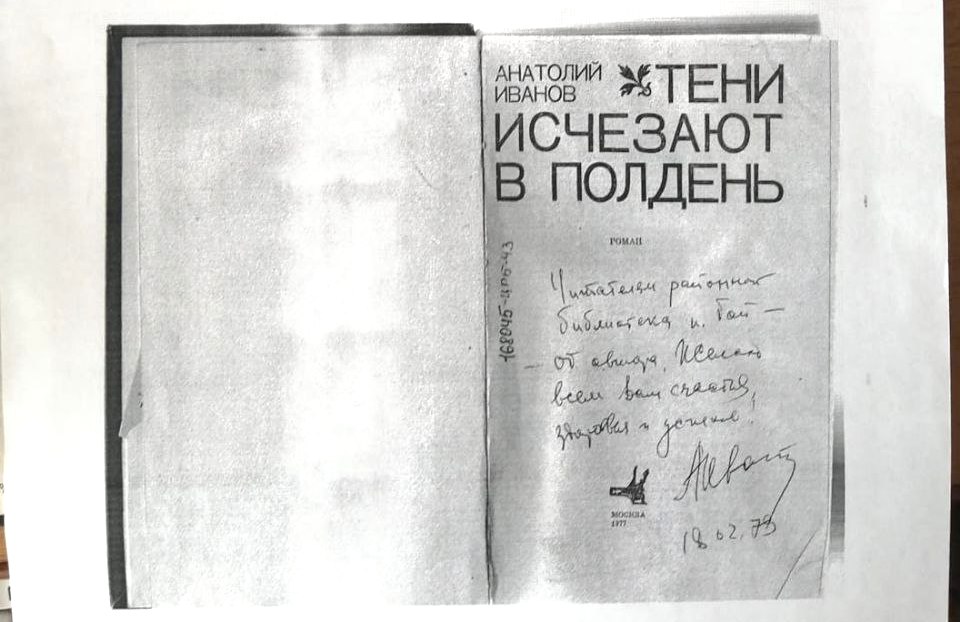 АНАТОЛИЙ
ИВАНОВ
ТЕНИ
ИСЧЕЗАЮТ
В ПОЛДЕНЬ
РОМАН
Читателям районной
библиотеки
— от автора. Желаю
всем вам счастья,
здоровья и успехов!
МОСКВА
1977